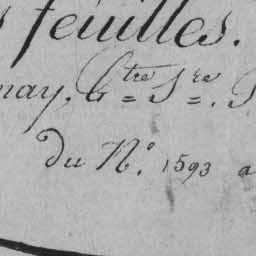 feuilles.
nay, C.tre S.re
du N.o 1593 a